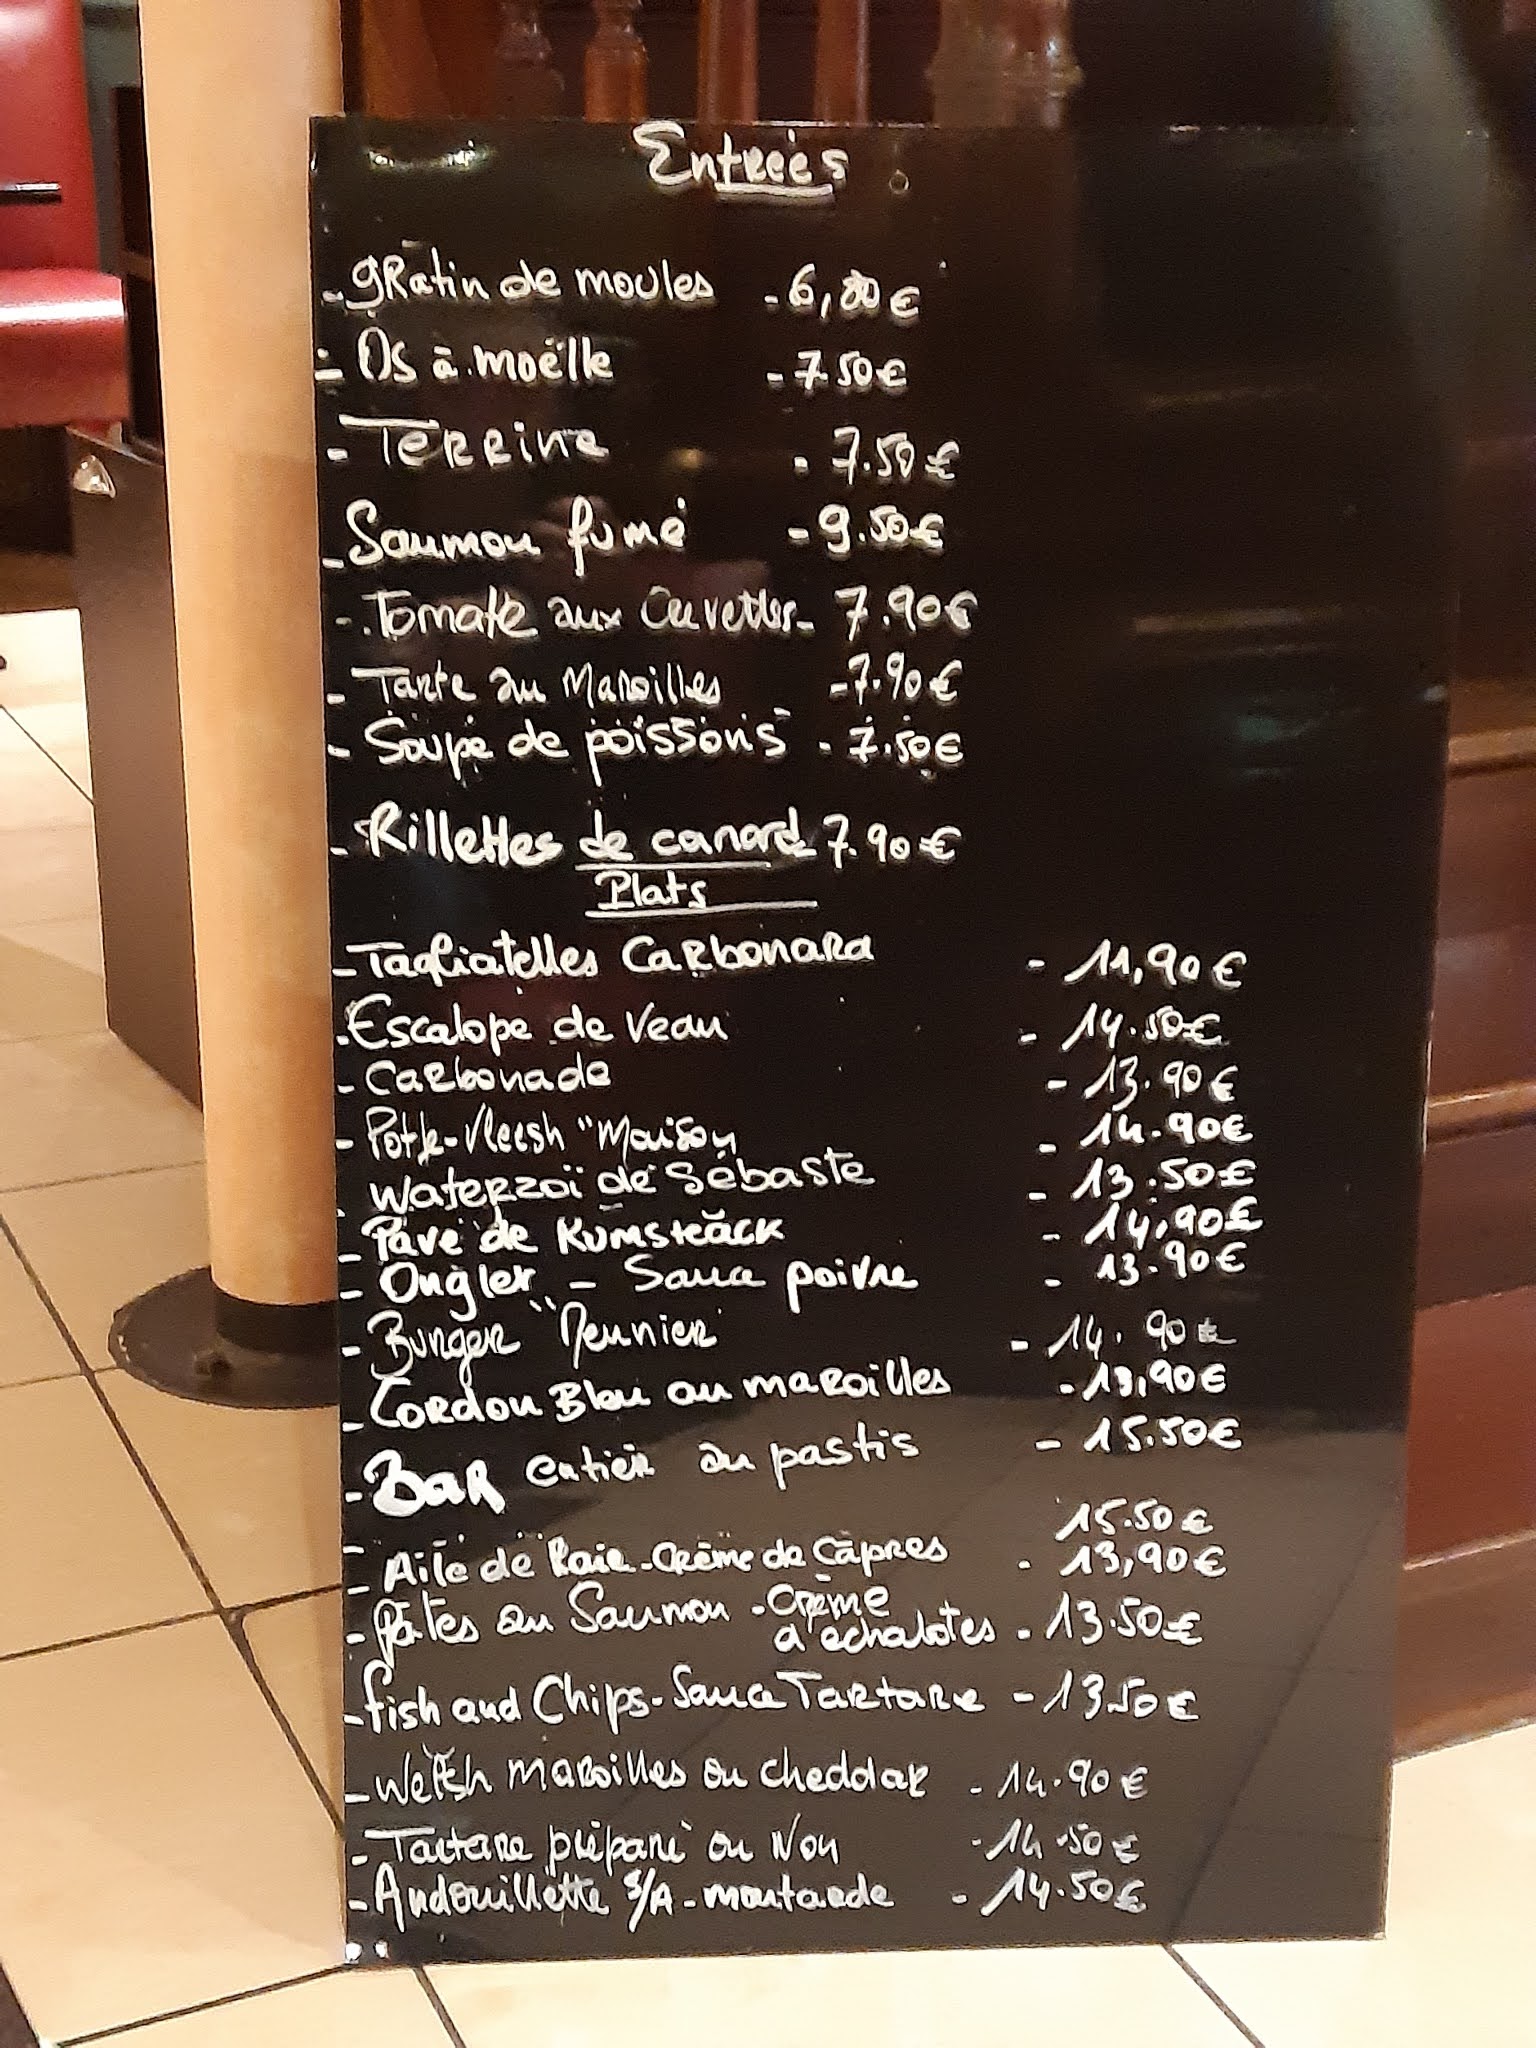 Entrées
- gRatin de moules - 6,80 €
- Os à moëlle - 7.50 €
- Terrine - 7.50 €
- Saumon fumé - 9.50 €
- Tomate aux Crevettes - 7.90 €
- Tarte au Maroilles - 7.90 €
- Soupe de poissons - 7.50 €
- Rillettes de canard 7.90 €
Plats
- Tagliatelles Carbonara - 11,90 €
- Escalope de Veau - 14.50 €
- Carbonade - 13.90 €
- Potje-Vleesh "Maison - 14.90 €
- Waterzoï de Sébaste - 13.50 €
- Pavé de Rumsteack - 14,90 €
- Onglet - Sauce poivre - 13.90 €
- Burger "Meunier - 14.90 €
- Cordon Bleu au maroilles - 13,90 €
- BAR entier au pastis - 15.50 €
15.50 €
- Aile de Raie - Crème de Câpres - 13,90 €
- Pâtes au Saumon - Crème
d'échalotes - 13.50 €
- fish and Chips - Sauce Tartare - 13.50 €
- Welsh maroilles ou cheddar - 14.90 €
- Tartare préparé ou Non - 14.50 €
- Andouillette S/A - moutarde - 14.50 €